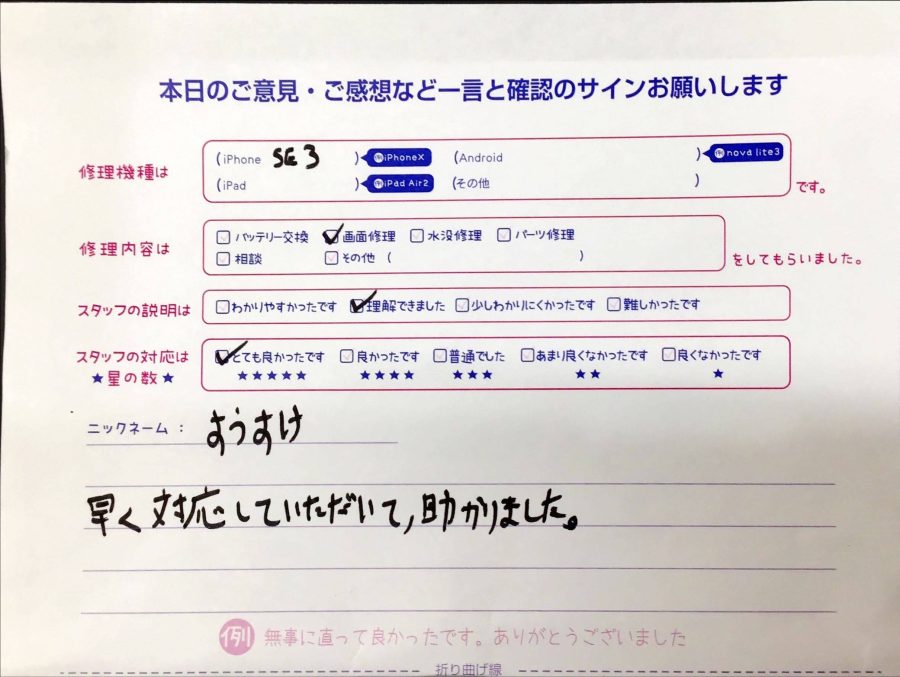 本日のご意見・ご感想など一言と確認のサインお願いします
修理機種は (iPhone SE 3 ) iPhoneX (Android ) nova lite3
(iPad ) iPad Air2 (その他 ) です。
修理内容は □バッテリー交換 ☑画面修理 □水没修理 □パーツ修理
□相談 □その他 ( ) をしてもらいました。
スタッフの説明は □わかりやすかったです ☑理解できました □少しわかりにくかったです □難しかったです
スタッフの対応は ☑とても良かったです □良かったです □普通でした □あまり良くなかったです □良くなかったです
★星の数★ ★★★★★ ★★★★ ★★★ ★★ ★
ニックネーム: すうすけ
早く対応していただいて,助かりました。
例 無事に直って良かったです。ありがとうございました
折り曲げ線